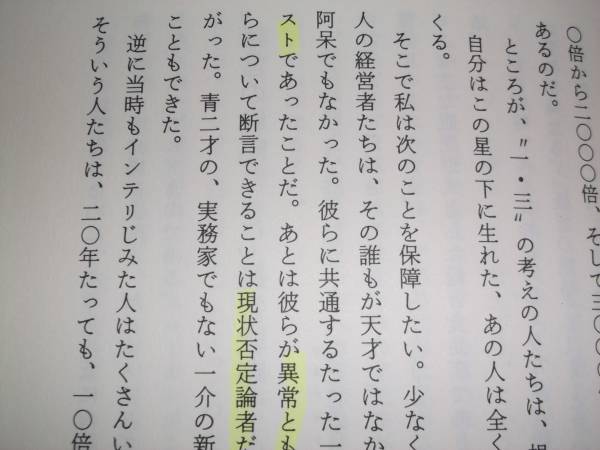 〇倍から二〇〇〇倍、そして三〇〇〇
あるのだ。
ところが、〝一・三〟の考えの人たちは、
自分はこの星の下に生れた、あの人は全く
くる。
そこで私は次のことを保障したい。少なく
人の経営者たちは、その誰もが天才ではなか
阿呆でもなかった。彼らに共通するたった一
ストであったことだ。あとは彼らが異常とも
らについて断言できることは現状否定論者だ
がった。青二才の、実務家でもない一介の新
こともできた。
逆に当時もインテリじみた人はたくさんい
そういう人たちは、二〇年たっても、一〇倍